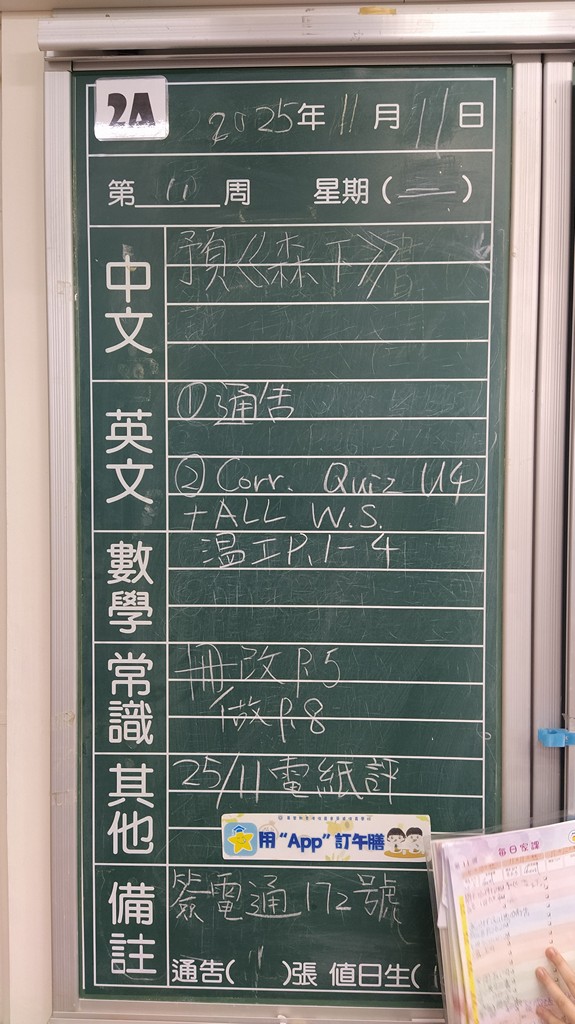 2A
2025年11月11日
第11周 星期(二)
中文
預《森下》
英文
①通告
②Corr. Quiz U4
+ALL W.S.
數學
温工P.1-4
常識
冊改P.5
做P.8
其他
25/11電紙評
用“App”訂午膳
備註
簽電通172號
通告( )張 值日生(
每日家課